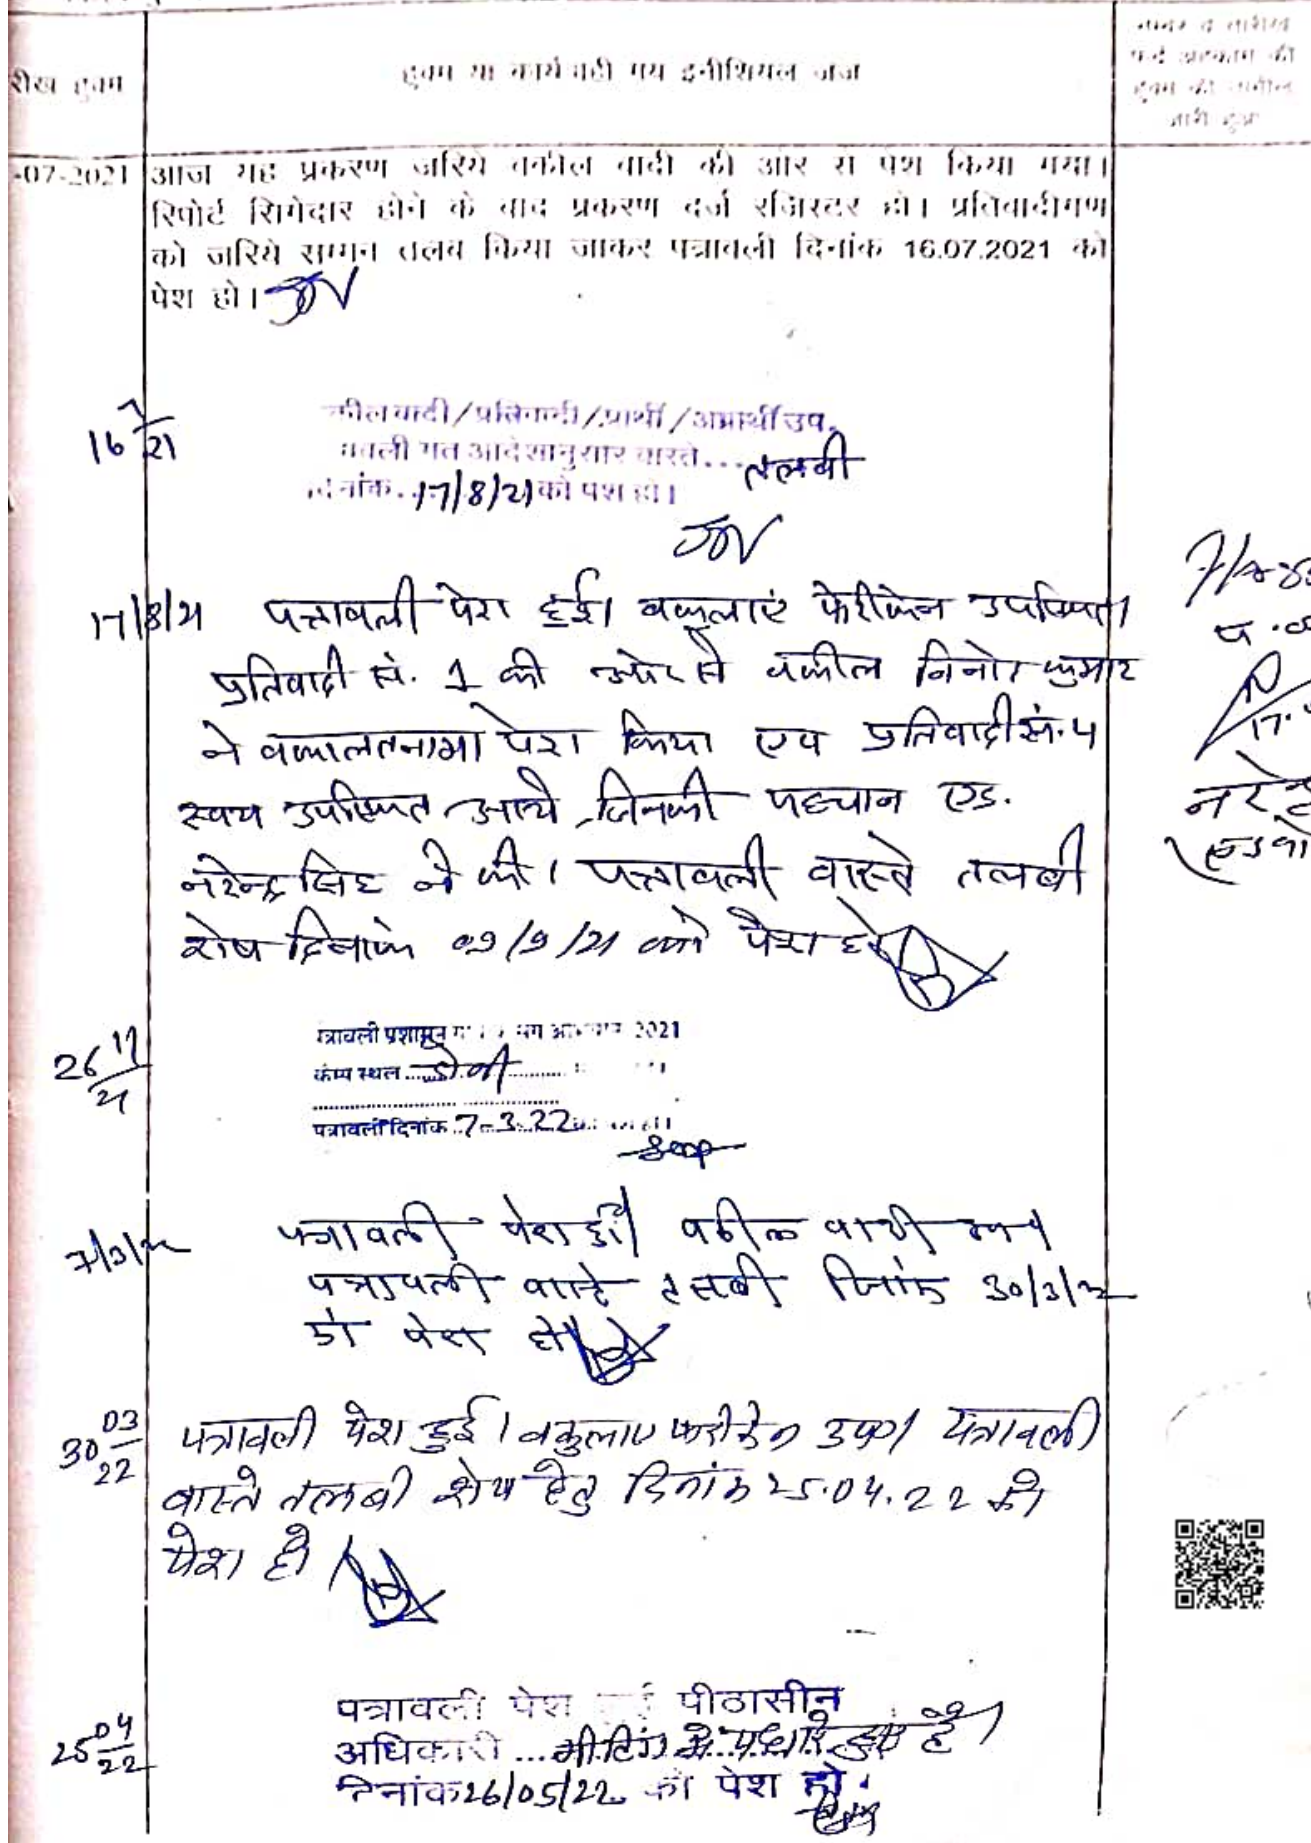 रीख हुक्म
हुक्म या कार्यवाही मय इनीशियल जज
नम्बर व तारीख
हुक्म की तामील
जारी हुआ
-07-2021 आज यह प्रकरण जरिये वकील वादी की ओर से पेश किया गया।
रिपोर्ट होने के बाद प्रकरण दर्ज रजिस्टर हो। प्रतिवादीगण
को जरिये सम्मन तलब किया जाकर पत्रावली दिनांक 16.07.2021 को
पेश हो।
16 7/21
कील वादी/प्रतिवादी/प्रार्थी/अप्रार्थी उप.
आदेशानुसार वास्ते... तलबी
दिनांक. 17/8/21 को पेश हो।
17/8/21 पत्रावली पेश हुई। वकुलाएं फरीकेन उपस्थित।
प्रतिवादी सं. 1 की ओर से वकील विनोद कुमार
ने वकालतनामा पेश किया एव प्रतिवादी सं. 4
स्वय उपस्थित आये जिनकी पहचान एड.
नरेन्द्र सिंह ने की। पत्रावली वास्ते तलबी
शेष दिनांक 09/9/21 को पेश हो
26 11/21
पत्रावली प्रशासन 2021
कैम्प स्थल
पत्रावली दिनांक 7-3-22
7/3/22 पत्रावली पेश हुई। वकील वादी उप।
पत्रावली वास्ते तलबी दिनांक 30/3/22
को पेश हो
30 03/22 पत्रावली पेश हुई। वकुलाए फरीकेन उप। पत्रावली
वास्ते तलबी शेष हेतु दिनांक 25.04.22 को
पेश हो।
25 04/22
पत्रावली पेश हुई पीठासीन
अधिकारी ...मीटिंग में पधारे हुए है।
दिनांक 26/05/22 को पेश हो.